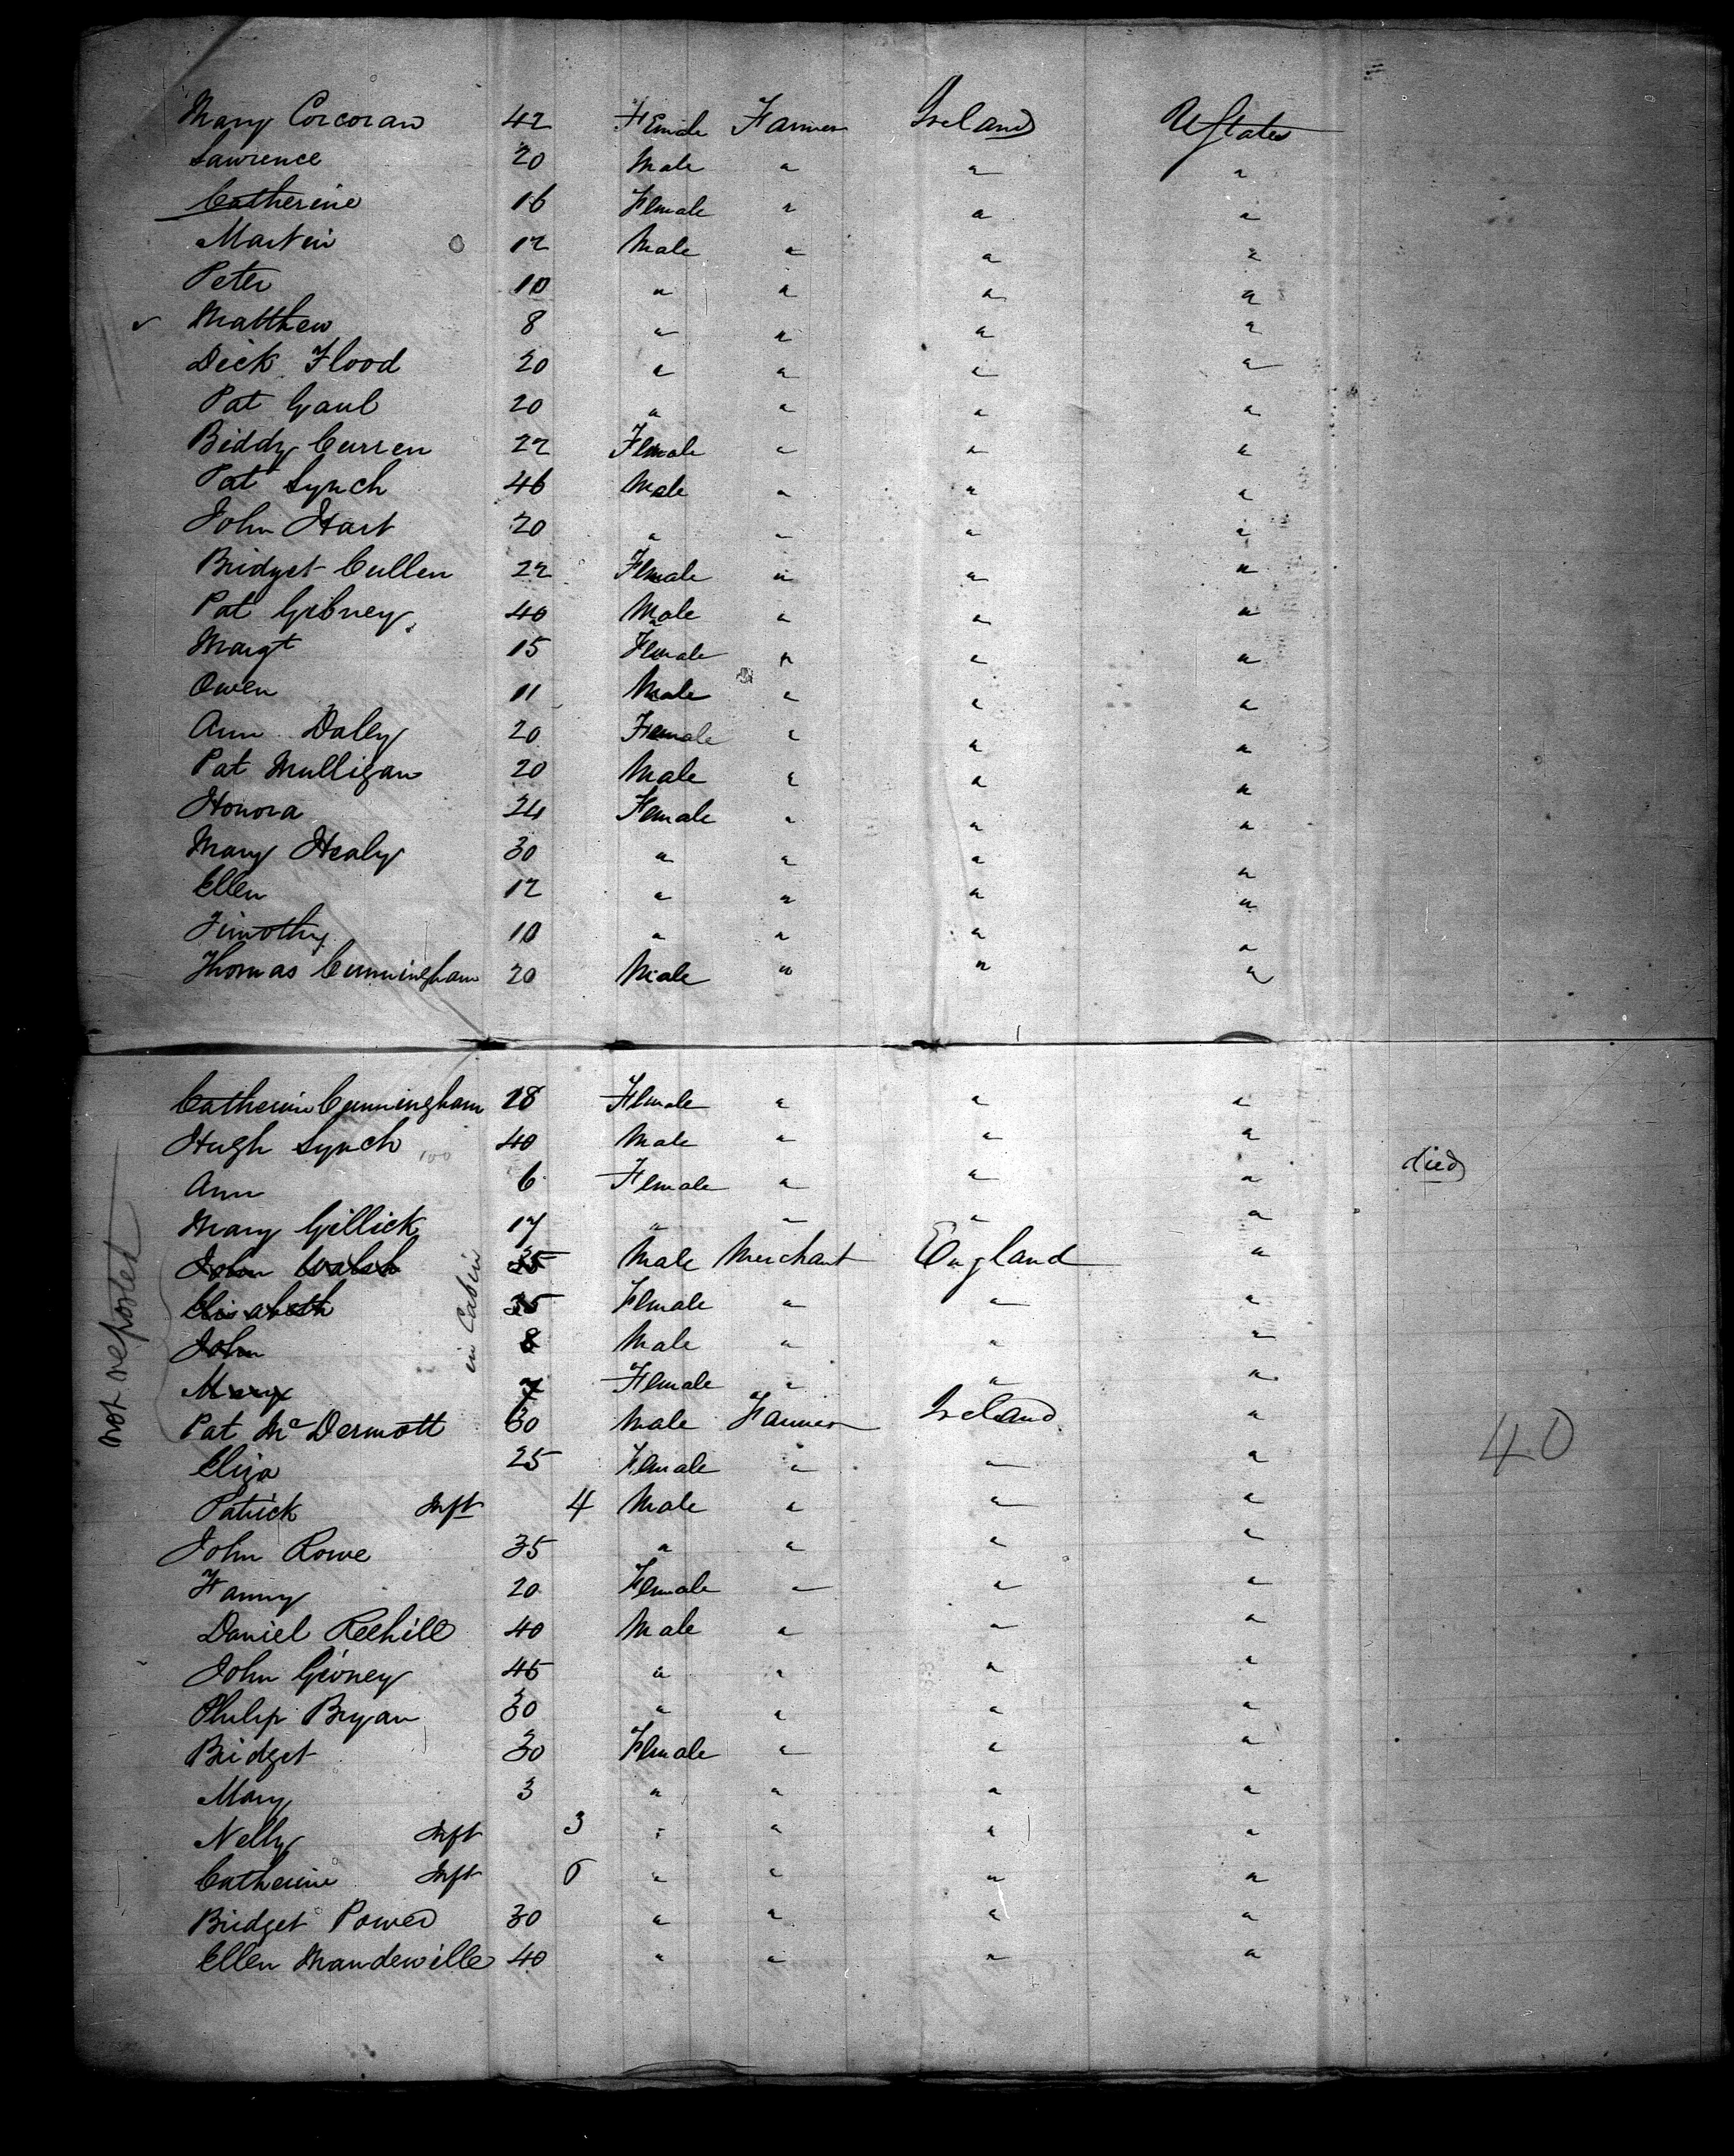 Mary Corcoran 42 Female Farmer Ireland U States
Lawrence 20 Male " " "
Catherine 16 Female " " "
Martin 12 Male " " "
Peter 10 " " " "
Matthew 8 " " " "
Dick Flood 20 " " " "
Pat Gaul 20 " " " "
Biddy Curren 22 Female " " "
Pat Lynch 46 Male " " "
John Hart 20 " " " "
Bridget Cullen 22 Female " " "
Pat Gibney 40 Male " " "
Margt 15 Female " " "
Owen 11 Male " " "
Ann Daley 20 Female " " "
Pat Mulligan 20 Male " " "
Honora 24 Female " " "
Mary Healy 30 " " " "
Ellen 12 " " " "
Timothy 10 " " " "
Thomas Cunningham 20 Male " " "
Catherine Cunningham 18 Female " " "
Hugh Lynch 100 40 Male " " "
Ann 6 Female " " " died
Mary Gillick 17 " " " "
John Walsh 35 Male Merchant England "
Elisabeth 35 Female " " "
John 8 Male " " "
Mary 7 Female " " "
in Cabin
not reported
Pat McDermott 30 Male Farmer Ireland "
40
Eliza 25 Female " " "
Patrick Inft 4 Male " " "
John Rowe 35 " " " "
Fanny 20 Female " " "
Daniel Reehill 40 Male " " "
John Givney 45 " " " "
Philip Bryan 30 " " " "
Bridget 30 Female " " "
Mary 3 " " " "
Nelly Inft 3 " " " "
Catherine Inft " " " "
Bridget Power 30 " " " "
Ellen Mandeville 40 " " " "